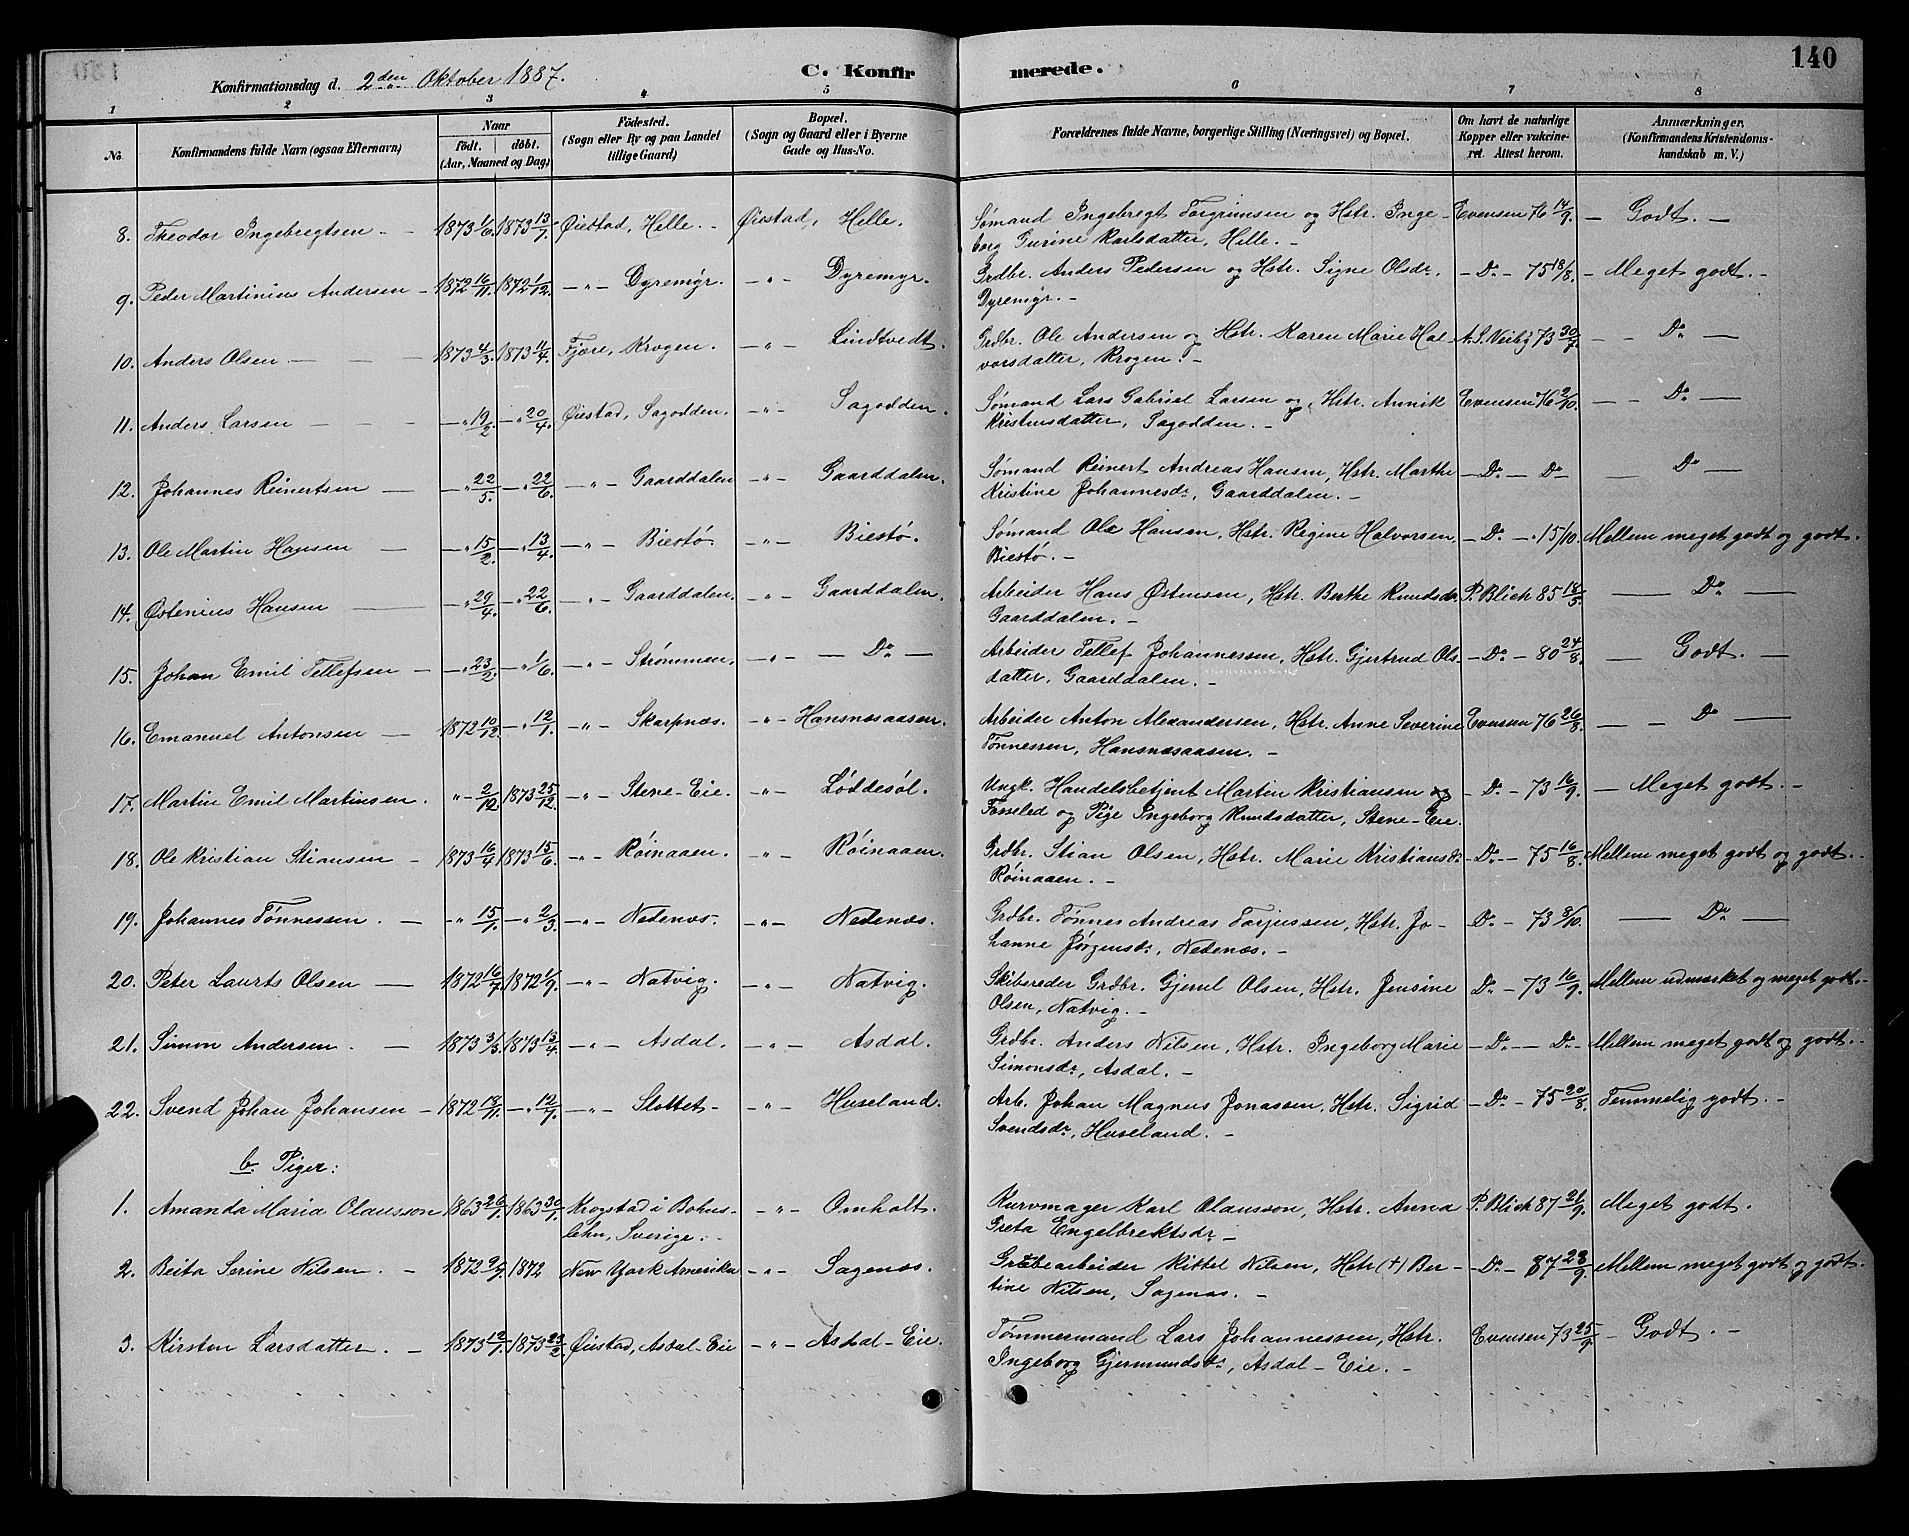 140
Konfirmationsdag d. 2den Oktober 1887. C. Konfirmerede.
1 2 3 4 5 6 7 8
No. Konfirmandens fulde Navn (ogsaa Efternavn) Naar Født. døbt. (Aar, Maaned og Dag) Fødested. (Sogn eller By og paa Landet tillige Gaard) Bopæl. (Sogn og Gaard eller i Byerne Gade og Hus-No. Forældrenes fulde Navne, borgerlige Stilling (Næringsvei) og Bopæl. Om havt de naturlige Kopper eller vakcineret. Attest herom. Anmærkninger. (Konfirmandens Kristendomskundskab m. V.)
8. Theodor Ingebregtsen - - 1873 1/6 1873 13/7. Øiestad, Helle. - Øiestad, Helle. Sømand Ingebregt Torgrimsen og Hstr. Inge- Evensen 76 14/9. - Godt. -
borg Gurine Karlsdatter, Helle. -
9. Peder Martinius Andersen - 1872 16/11. 1872 1/12. -"- Dyremyr. -"- Dyremyr. Grdbr. Anders Pedersen og Hstr. Signe Olsdr. - Do - 75 18/8. - Meget godt. -
Dyremyr. -
10. Anders Olsen - - - 1873 4/3. 1873 11/4. Fjære, Krogen. -"- Lindtvedt. Grdbr. Ole Andersen og Hstr. Karen Marie Hal- A. S. Neiby 73 30/7. - - Do -
vorsdatter, Krogen. -
11. Anders Larsen - - - -" 19/2 -" 20/4. Øiestad, Sagodden. -"- Sagodden. Sømand Lars Gabriel Larsen og Hstr. Annik Evensen 76 2/10. - - Do -
Kristensdatter, Sagodden. -
12. Johannes Reinertsen - -" 22/5. -" 22/6. -"- Gaarddalen -"- Gaarddalen. Sømand Reinert Andreas Hansen, Hstr. Marthe - Do - Do - Do -
Kristine Johannesdr., Gaarddalen. -
13. Ole Martin Hansen - -" 15/2. -" 13/4. -"- Biestø. -"- Biestø. Sømand Ole Hansen, Hstr. Regine Halvorsen, - Do - " 15/10. Mellem meget godt og godt.
Biestø. -
14. Østenius Hansen - -" 29/4. -" 22/6. -"- Gaarddalen. -"- Gaarddalen. Arbeider Hans Østensen, Hstr. Berthe Knudsdr. P. Blich 85 18/5. - Do -
Gaarddalen. -
15. Johan Emil Tellefsen - -" 23/2. -" 1/6. -"- Strømmen. -"- - Do - Arbeider Tellef Johannessen, Hstr. Gjertrud Ols- - Do - 80 24/8. - Godt. -
datter, Gaarddalen. -
16. Emanuel Antonsen - 1872 10/12. -" 12/1. -"- Skarpnæs. -"- Hansnæsaasen. Arbeider Anton Alexandersen, Hstr. Anne Severine Evensen 76 26/8. - - Do -
Tønnessen, Hansnæsaasen. -
17. Martin Emil Martinsen. "- 2/12 1873 25/12. -"- Stene-Eie. -"- Løddesøl. Ungk. Handelsbetjent Martin Kristiansen og - Do - 73 16/9. - Meget godt. -
Fossled og Pige Ingeborg Knudsdatter, Stene-Eie.
18. Ole Kristian Stiansen - 1873 16/4 1873 15/6. -"- Røinaaen. -"- Røinaaen. Grdbr. Stian Olsen, Hstr. Marie Kristiansdr. - Do - 75 16/8. Mellem meget godt og godt. -
Røinaaen. -
19. Johannes Tønnessen. - -" 15/1. -" 2/3. -"- Nedenæs. -"- Nedenæs. Grdbr. Tønnes Andreas Torjussen, Hstr. Jo- - Do - 73 8/10. - Do -
hanne Jørgensdr., Nedenæs. -
20. Peter Laurts Olsen - 1872 16/7. 1872 1/9. -"- Natvig. -"- Natvig. Skibsreder Grdbr. Gjerul Olsen, Hstr. Jensine Do - 73 16/9. Mellem udmærket og meget godt. -
Olsen, Natvig. -
21. Simon Andersen. - 1873 3/3. 1873 13/4. -"- Asdal. -"- Asdal. Grdbr. Anders Nilsen, Hstr. Ingeborg Marie - Do - Do - Mellem meget godt og godt. -
Simonsdr., Asdal. -
22. Svend Johan Johansen - 1872 18/11. -" 12/1. -"- Slottet -"- Huseland. Arb. Johan Magnus Jonassen, Hstr. Sigrid - Do - 75 20/8. Temmelig godt. -
Svendsdr., Huseland. -
b. Piger:
1. Amanda Maria Olausson 1863 26/1. 1863 30/1. Krogstad i Bohus- -"- Omholt. Kurvmager Karl Olausson, Hstr. Anna P. Blich 87 21/9. Meget godt.
lehn, Sverige. - Greta Engelbrektsdr. -
2. Beita Serine Nilsen. - 1872 1872 New York Amerika -"- Sagenæs. Grubearbeider Kittel Nilsen, Hstr (+) Ber- - Do - 87 23/9. Mellem meget godt og godt.
tine Nilsen, Sagenæs. -
3. Kirsten Larsdatter. - 1873 12/1. 1873 23/2 Øiestad, Asdal-Eie -"- Asdal-Eie. Tømmermand Lars Johannessen, Hstr. Evensen 73 25/9 - Godt. -
Ingeborg Gjermundsdr., Asdal-Eie. -